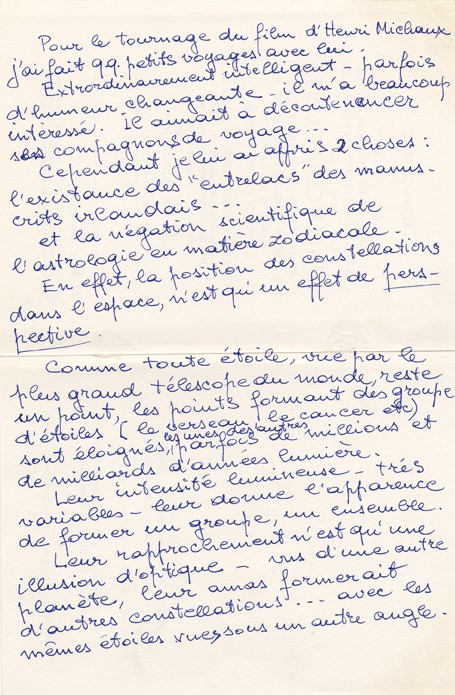 Pour le tournage du film d'Henri Michaux
j'ai fait qq. petits voyages avec lui.
Extrordinairement intelligent - parfois
d'humeur changeante - il m'a beaucoup
interessé. Il aimait à décontenancer
ses compagnons de voyage...
Cependant je lui ai appris 2 choses :
l'existance des "entrelacs" des manus-
crits irlandais ...
et la négation scientifique de
l'astrologie en matière zodiacale.
En effet, la position des constellations
dans l'espace, n'est qu'un effet de pers-
pective.
Comme toute étoile, vue par le
plus grand télescope du monde, reste
un point, les points formant des groupe
d'étoiles (le verseau, le cancer etc)
les unes des autres
sont éloignés, parfois de millions et
de milliards d'années lumière.
Leur intensité lumineuse - très
variables - leur donne l'apparence
de former un groupe, un ensemble.
Leur rapprochement n'est qu'une
illusion d'optique - vus d'une autre
planète, leur amas formerait
d'autres constellations ... avec les
mêmes étoiles vues sous un autre angle.